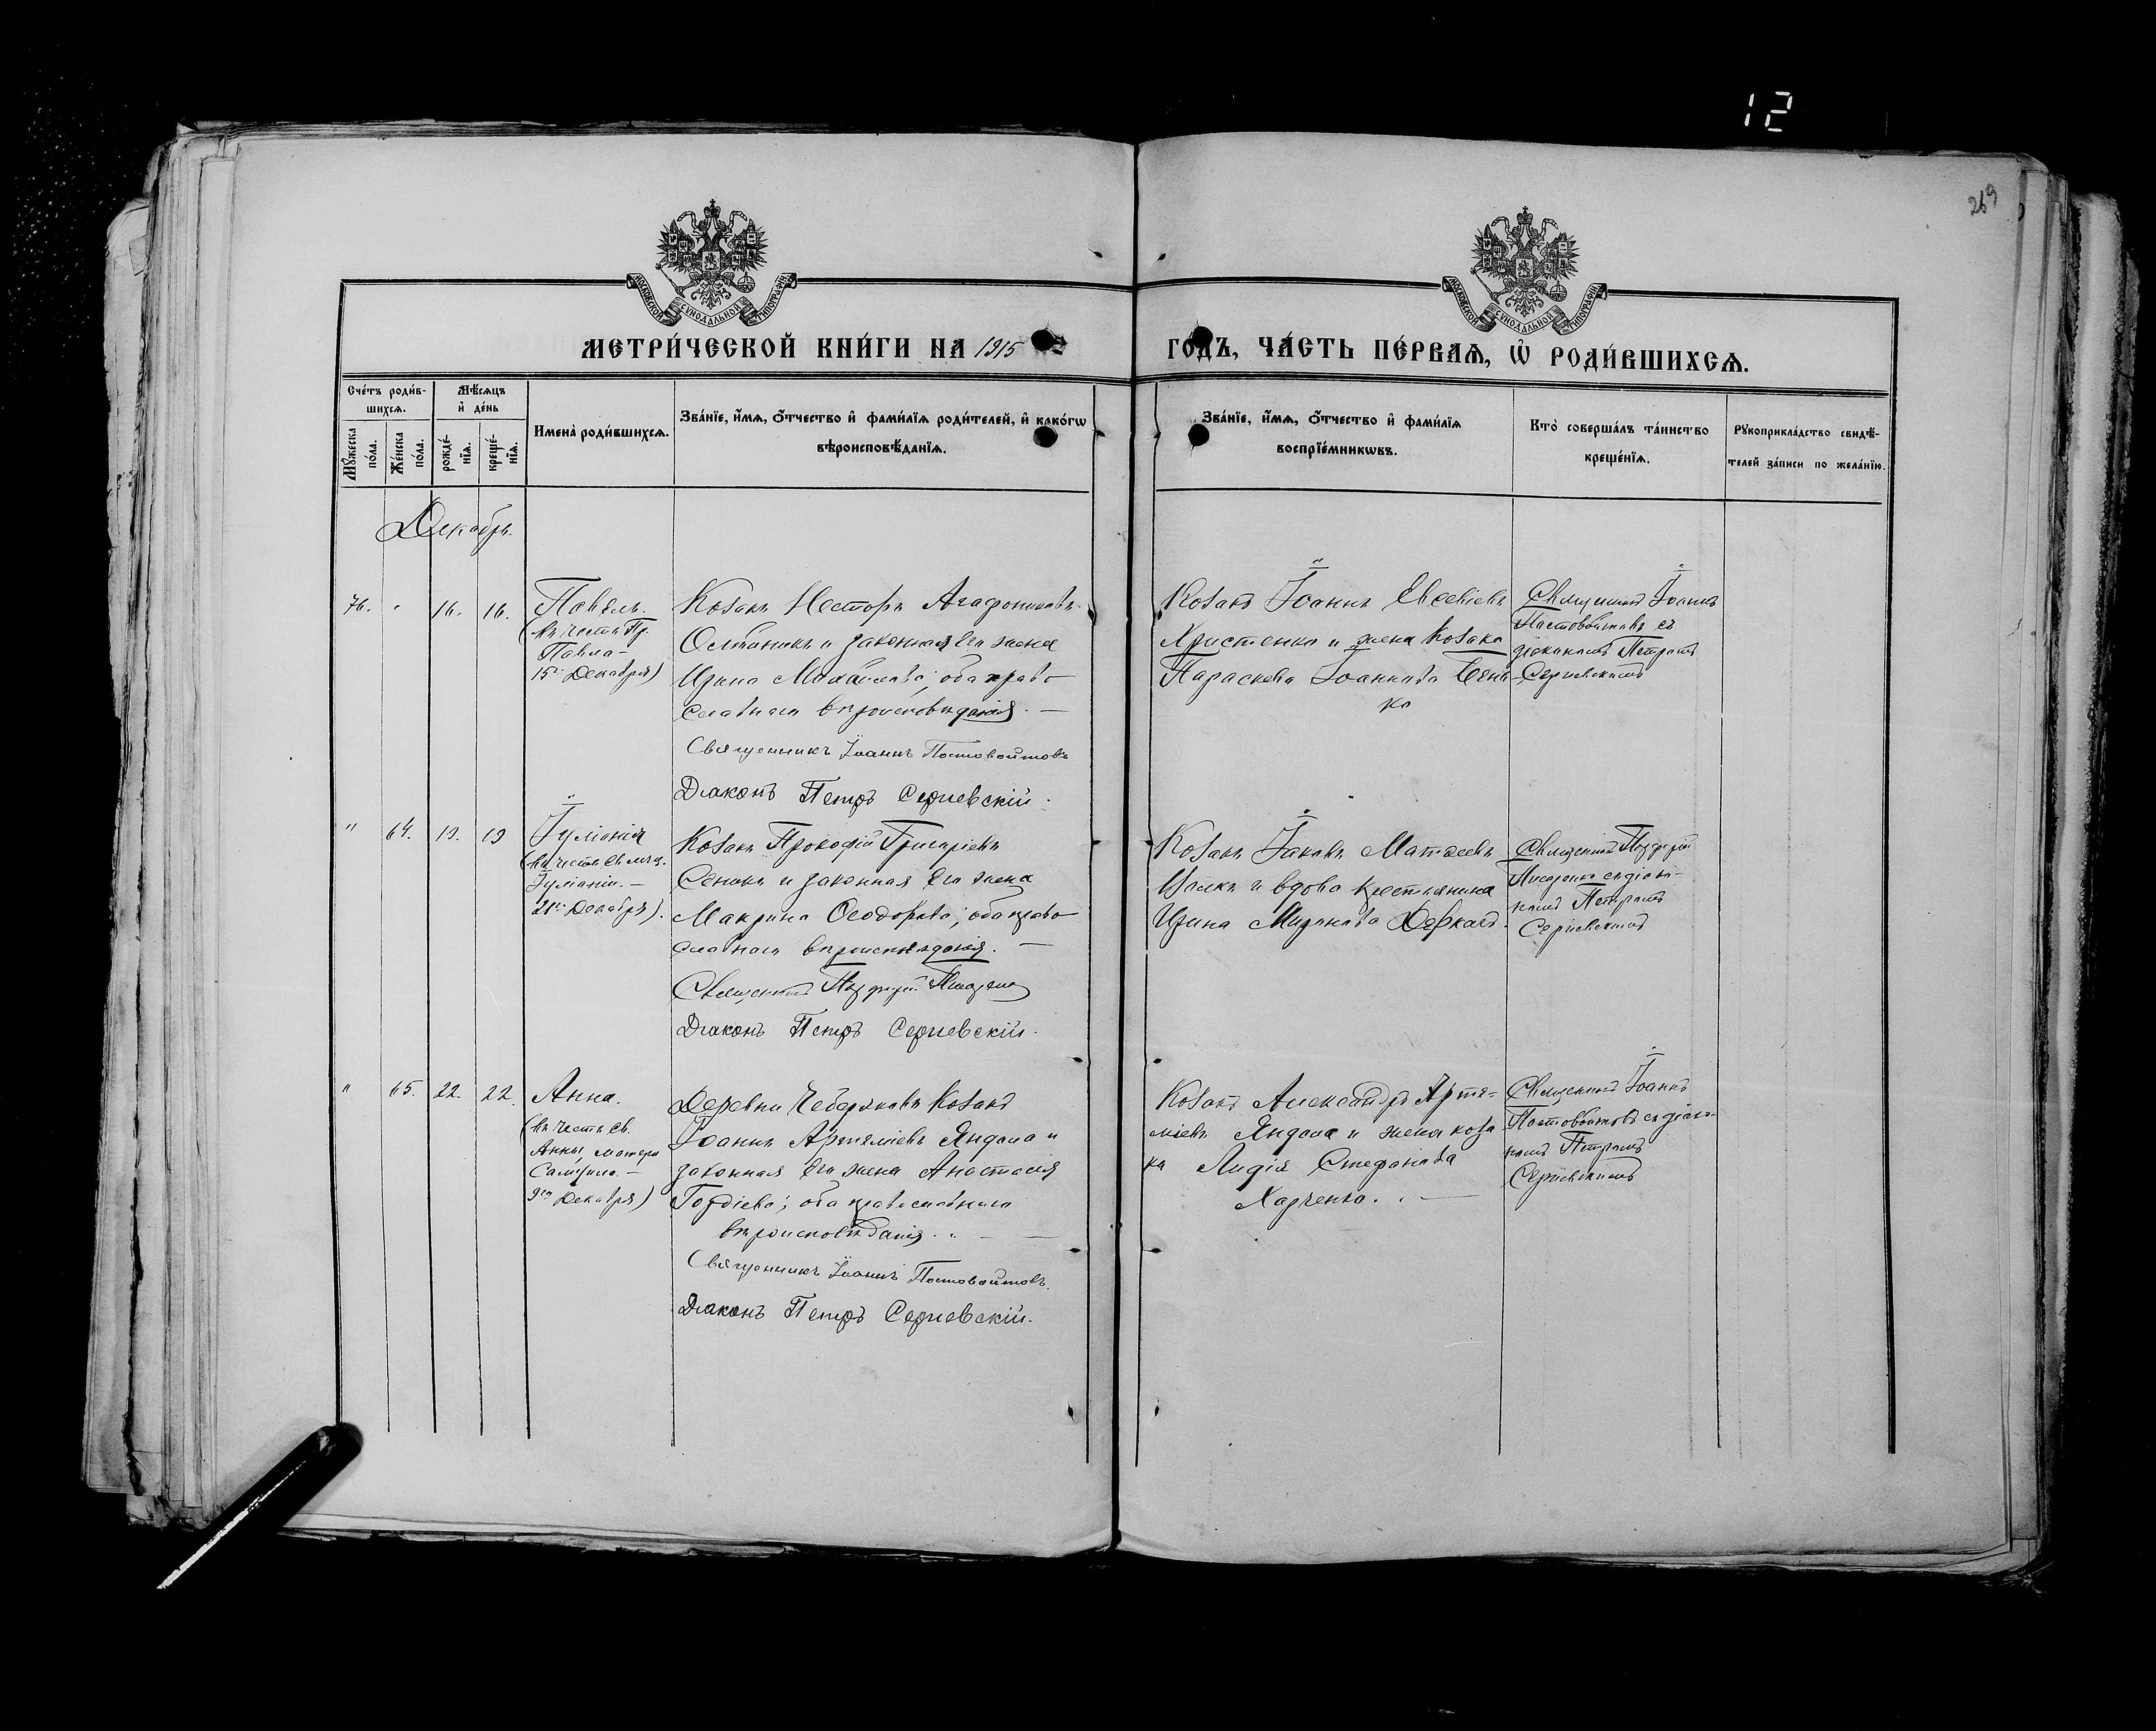 12
269
МОСКОВСКОЙ СУНОДАЛЬНОЙ ТИПОГРАФІИ
МОСКОВСКОЙ СУНОДАЛЬНОЙ ТИПОГРАФІИ
МЕТРИ́ЧЕСКОЙ КНИ́ГИ НА 1915
ГО́ДЪ, ЧА́СТЬ ПЕ́РВАѦ, Ѡ҆ РОДИ́ВШИХСѦ.
Сче́тъ роди́в-
шихсѧ.
Мѣ́сѧцъ
и҆ де́нь
Мꙋ́жеска
по́ла.
Же́нска
по́ла.
рожде́-
нїѧ.
креще́-
нїѧ.
Имена̀ роди́вшихсѧ.
Зва́нїе, и҆́мѧ, ѻ҆́тчество и҆ фами́лїѧ роди́телей, и҆ како́гѡ
вѣроисповѣ́данїѧ.
Зва́нїе, и҆́мѧ, ѻ҆́тчество и҆ фами́лїѧ
воспрїе́мникѡвъ.
Кто̀ соверша́лъ та́инство
креще́нїѧ.
Рꙋкоприкла́дство свидѣ́-
телей за́писи по жела́нїю.
Декабрь.
76. " 16. 16.
Павелъ.
(въ честь Пр.
Павла —
15го Декабря)
Козакъ Несторъ Агафониковъ
и законная его жена
Ирина ; оба право-
славнаго вѣроисповѣданія. —
Священникъ Іоаннъ Постовойтовъ
Діаконъ Петръ Сергіевскій.
Козакъ Іоаннъ Евсевіевъ
Христенко и жена козака
Параскева Іоаннова
ко
Священникъ Іоаннъ
Постовойтовъ съ
діакономъ Петромъ
Сергіевскимъ
" 64. 19. 19
Іуліанія
(въ честь св. мчц.
Іуліаніи. —
21го Декабря).
Козакъ Прокофій Григоріевъ
Сеникъ и законная его жена
Макрина Ѳеодорова; оба право-
славнаго вѣроисповѣданія. —
Священникъ
Діаконъ Петръ Сергіевскій.
Козакъ Іаковъ Матѳеевъ
и вдова крестьянина
Ирина Миронова Деркачъ.
Священникъ
съ діако-
номъ Петромъ
Сергіевскимъ
" 65. 22. 22.
Анна.
(въ честь св.
Анны, матери
Самуила. —
9го Декабря)
Деревни Чеберяковъ козакъ
Іоаннъ Артеміевъ Яндола и
законная его жена Анастасія
Гордіева; оба православнаго
вѣроисповѣданія. — —
Священникъ Іоаннъ Постовойтовъ.
Діаконъ Петръ Сергіевскій.
Козакъ Александръ Арте-
міевъ Яндола и жена коза
ка Лидія Стефанова
Харченко. —
Священникъ Іоаннъ
Постовойтовъ съ діако-
номъ Петромъ
Сергіевскимъ